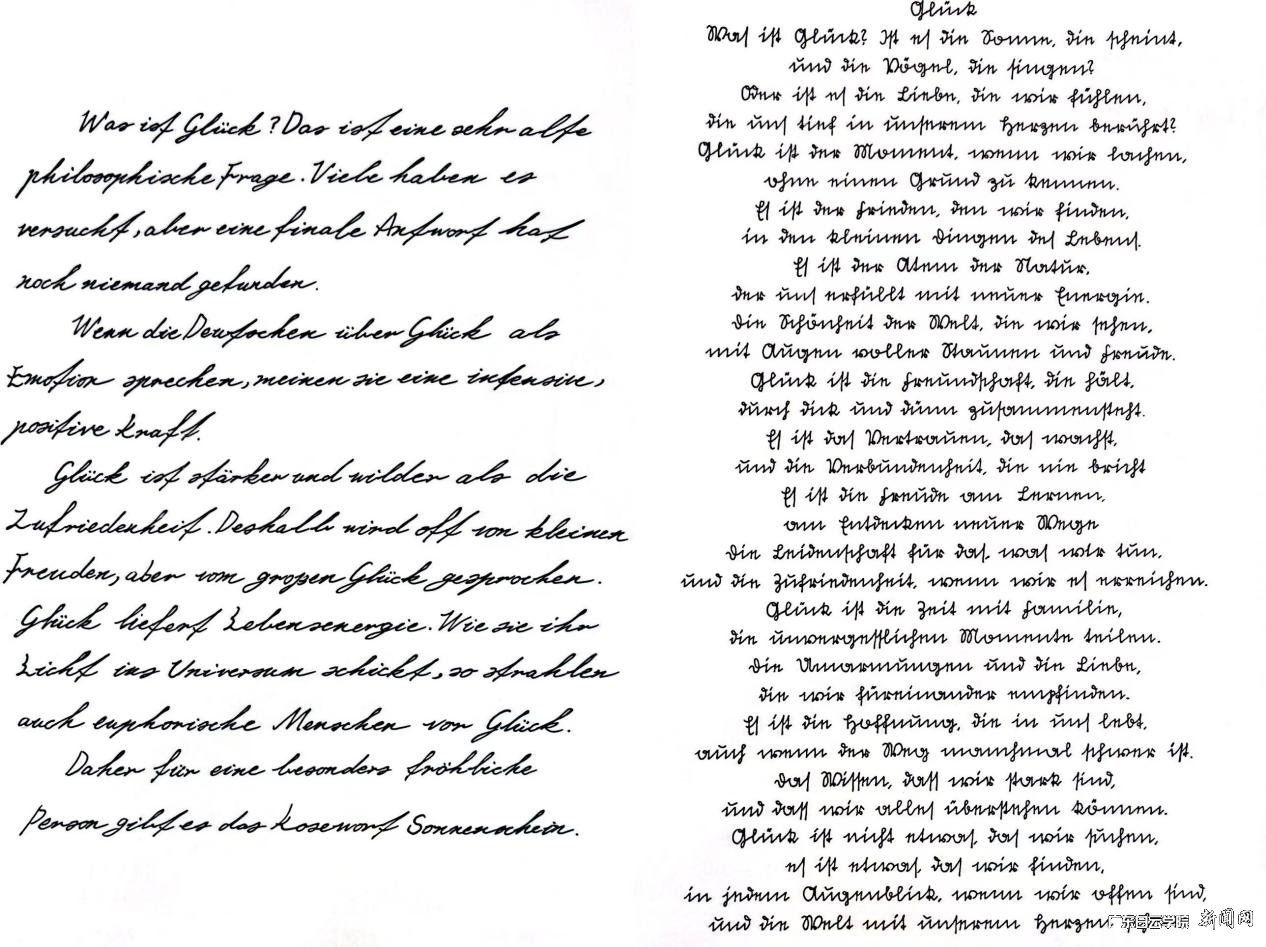 Was ist Glück? Das ist eine sehr alte
philosophische Frage. Viele haben es
versucht, aber eine finale Antwort hat
noch niemand gefunden.
Wenn die Deutschen über Glück als
Emotion sprechen, meinen sie eine intensive,
positive Kraft.
Glück ist stärker und wilder als die
Zufriedenheit. Deshalb wird oft von kleinen
Freuden, aber vom großen Glück gesprochen.
Glück liefert Lebensenergie. Wie sie ihr
Licht ins Universum schickt, so strahlen
auch euphorische Menschen vor Glück.
Daher für eine besonders fröhliche
Person gibt es das Kosewort Sonnenschein.
Glück
Was ist Glück? Ist es die Sonne, die scheint,
und die Vögel, die singen?
Oder ist es die Liebe, die wir fühlen,
die uns tief in unserem Herzen berührt?
Glück ist der Moment, wenn wir lachen,
ohne einen Grund zu kennen.
Es ist der Frieden, den wir finden,
in den kleinen Dingen des Lebens.
Es ist der Atem der Natur,
der uns erfüllt mit neuer Energie.
Die Schönheit der Welt, die wir sehen,
mit Augen voller Staunen und Freude.
Glück ist die Freundschaft, die hält,
durch dick und dünn zusammensteht.
Es ist das Vertrauen, das wachst,
und die Verbundenheit, die nie bricht
Es ist die Freude am Lernen,
am Entdecken neuer Wege
Die Leidenschaft für das, was wir tun,
und die Zufriedenheit, wenn wir es erreichen.
Glück ist die Zeit mit Familie,
die unvergesslichen Momente teilen.
Die Umarmungen und die Liebe,
die wir füreinander empfinden.
Es ist die Hoffnung, die in uns lebt,
auch wenn der Weg manchmal schwer ist.
Das Wissen, dass wir stark sind,
und dass wir alles überstehen können.
Glück ist nicht etwas, das wir suchen,
es ist etwas, das wir finden,
in jedem Augenblick, wenn wir offen sind,
und die Welt mit unserem Herzen
广东白云学院 新闻网